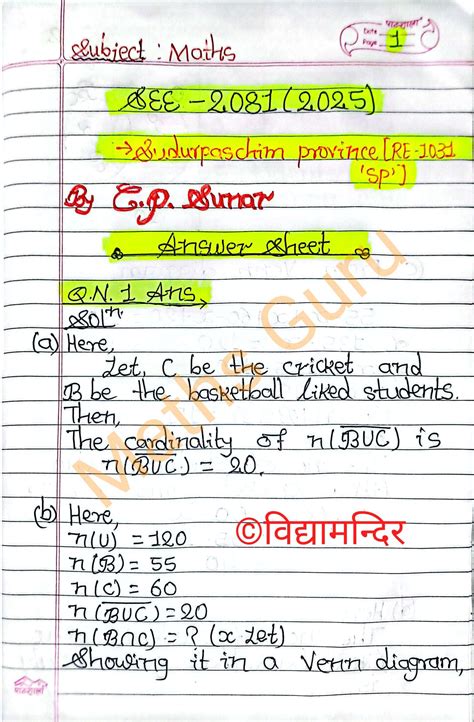 पाठशाला
Date
Page 1
Subject : Maths
SEE - 2081 (2025)
→ Sudurpaschim province [RE-1031
'SP']
By C.P. Sunar
Answer Sheet
Q.N. 1 Ans,
Solⁿ.
(a) Here,
Let, C be the cricket and
B be the basketball liked students.
Then,
The cardinality of n(B̅U̅C̅) is
n(B̅U̅C̅) = 20.
(b) Here,
©विद्यामन्दिर
n(U) = 120
n(B) = 55
n(C) = 60
n(B̅U̅C̅) = 20
n(B∩C) = ? (x Let)
Showing it in a Venn diagram,
Maths Guru
पाठशाला